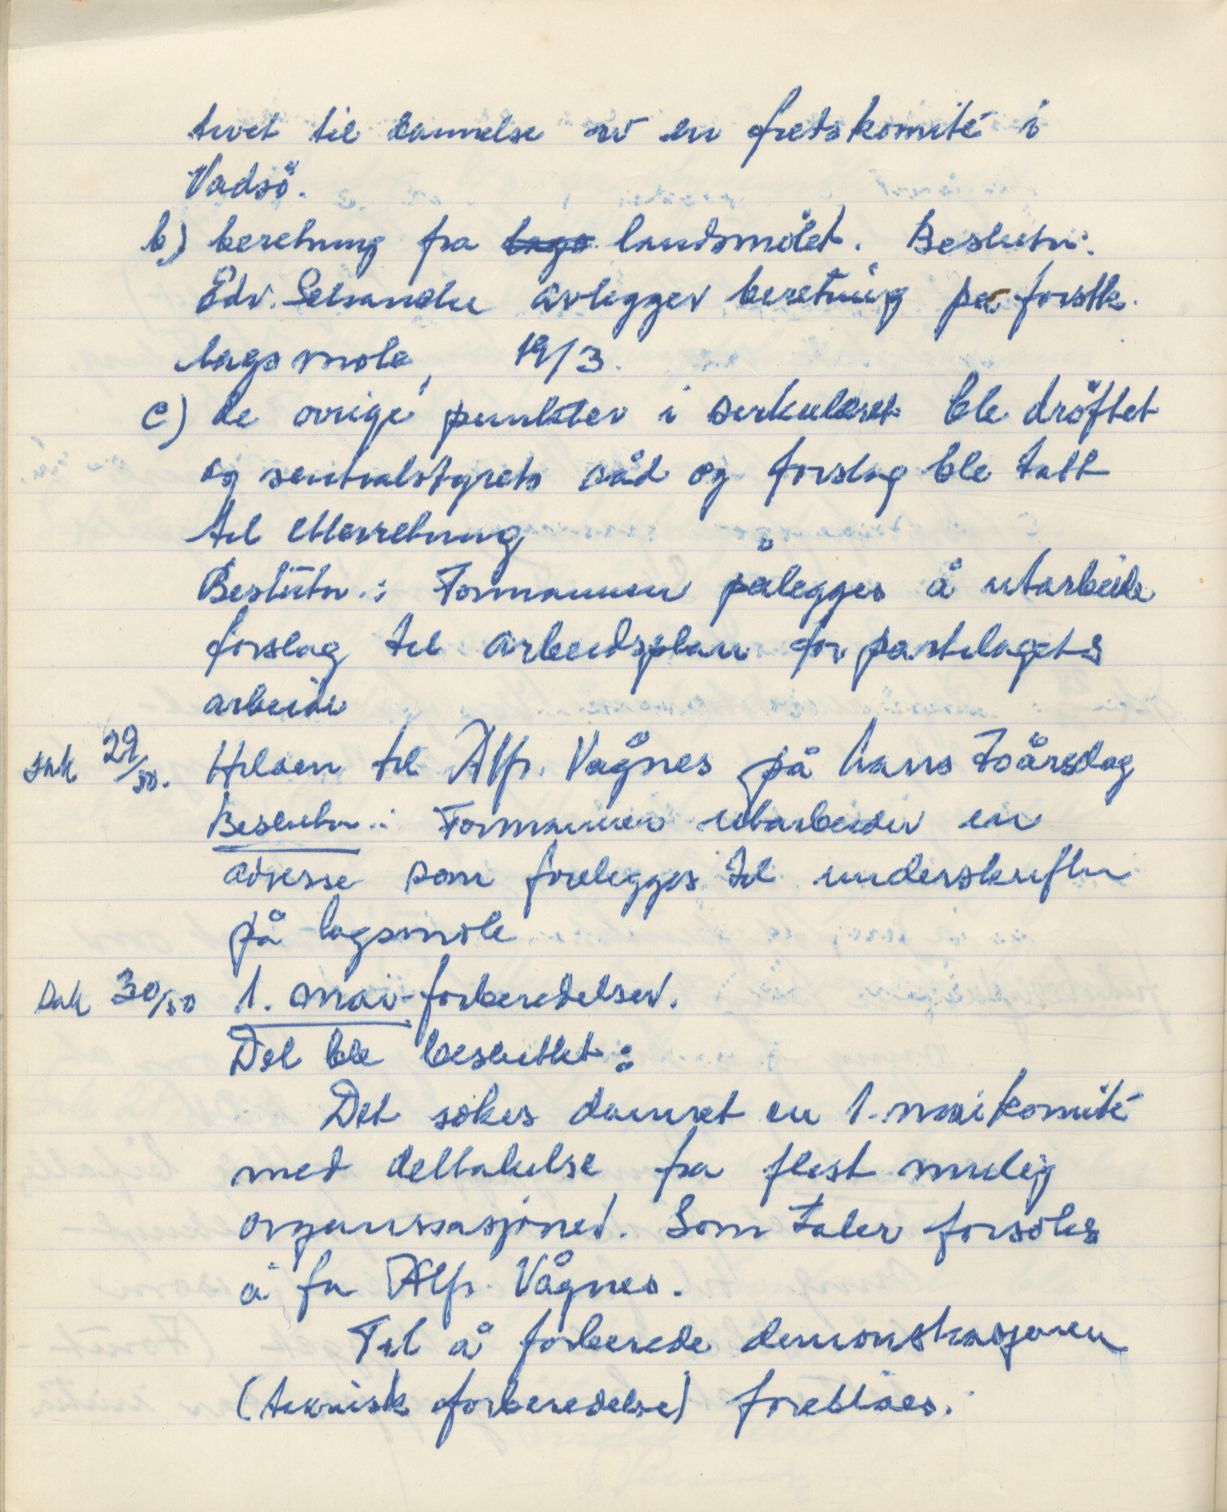 tivet til dannelse av en fredskomité i
Vadsö.
b) beretning fra lags landsmötet. Beslutn:
Edv. avlegger beretning på forstk.
lagsmöte, 19/3.
c) de övrige punkter i serkulæret ble dröftet
og sentralstyrets råd og forslag ble tatt
til etterretning
Beslutn.: Formannen pålegges å utarbeide
forslag til arbeidsplan for partilagets
arbeide
sak 29/50. Hilsen til Alfr. Vågnes på hans 70årsdag
Beslutn.: Formannen utarbeider en
adresse som forelegges til underskrifter
på lagsmöte
Sak 30/50 1. mai-forberedelser.
Det ble besluttet:
Det sökes dannet en 1. maikomité
med deltakelse fra flest mulig
organisasjoner. Som taler forsökes
å få Alfr. Vågnes.
Til å forberede demonstrasjonen
(teknisk forberedelse) foreslåes: